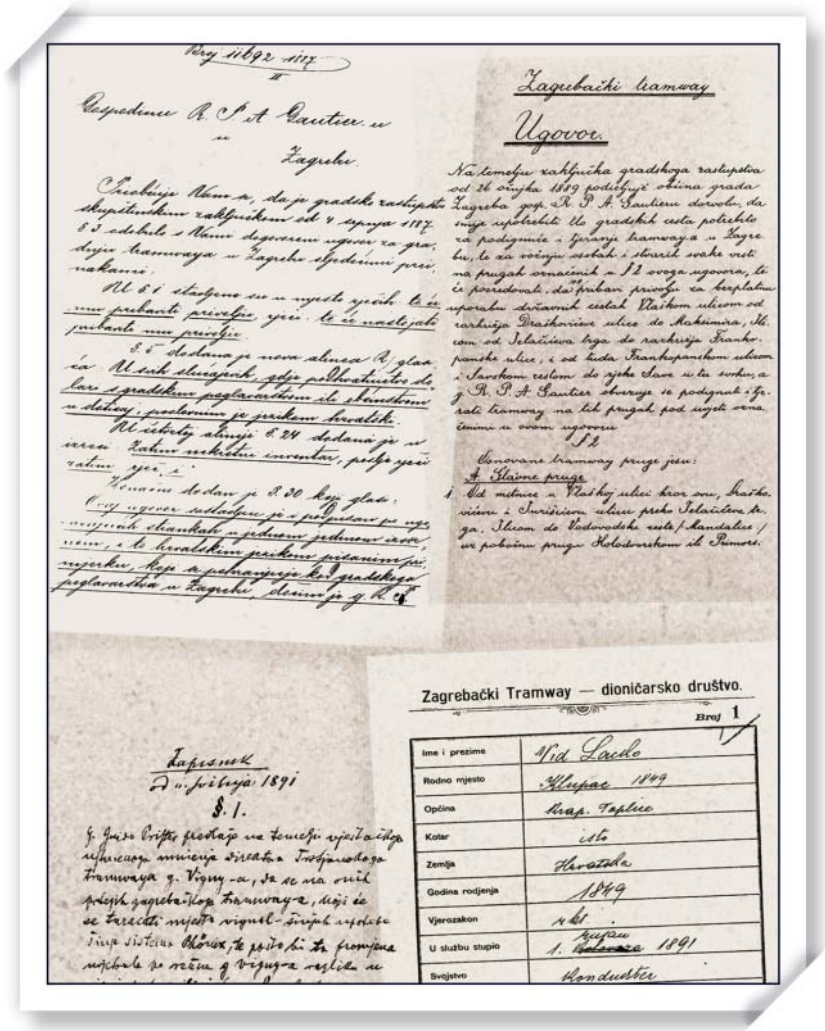 Broj 11692 1887
II
Gospodinu R. P. A. Gautier-u
u
Zagrebu.
Priobćuje Vam se, da je gradsko zastupstvo
skupštinskim zaključkom od 4 srpnja 1887.
§ 3 odobilo s Vami dogovoreni ugovor za gra-
dnju tramwaya u Zagrebu sljedećimi prei-
nakami.
U § 1 stavljeno su u mjesto rječih te će
mu pribaviti privolje rječi: te će nastojati
pribaviti mu privolje.
§. 5 dodana je nova alinea R/ glase-
ća. U svih slučajevih, gdje poduhvatnictvo do-
lazi s gradskim poglavarstvom ili obćinstvom
u doticaj, poslovnim je jezikom hrvatski.
U istoj alineji §. 24 dodana je u
izreci. Zatim nekretni inventar, poslje rječi
zatim rječ. i
Konačno dodan je §. 30 koji glasi:
Ovaj ugovor sastavljen je i podpisan po ugo-
varajućih strankah u jednom jedinom izvor-
nom, i to hrvatskim jezikom pisanim pri-
mjerku, koji se pohranjuje kod gradskoga
poglavarstva u Zagrebu, dočim je g. R. P.
Zagrebački tramway
Ugovor.
Na temelju zaključka gradskoga zastupstva
od 26 ožujka 1889 podieljuje obćina grada
Zagreba gosp. R. P. A. Gautieru dozvolu, da
smije upotrebiti tlo gradskih cesta potrebito
za podignuće i tjeranje tramwaya u Zagre-
bu, te za vožnju osobah i stvarih svake vrsti
na prugah označenih u § 2 ovoga ugovora, te
će posredovati, da mu pribavi privolju za bezplatnu
uporabu državnih cestah Vlaškom ulicom od
razkrižja Draškovićeve ulice do Maksimira, Ili-
com od Jelačićeva trga do razkrižja Franko-
panske ulice, i od tuda Frankopanskom ulicom
i Savskom cestom do rijeke Save u tu svrhu, a
g. R. P. A. Gautier obvezuje se podignuti i tje-
rati tramway na tih prugah pod uvjeti ozna-
čenimi u ovom ugovoru
§ 2
Osnovane tramway pruge jesu:
A. Glavne pruge
1 Od mitnice u Vlaškoj ulici kroz ovu, Draško-
vićevu i Jurišićevu ulicu preko Jelačićeva tr-
ga, Ilicom do Vodovodske ceste / Mandalice /
uz pobočnu prugu Kolodvorskom ili Primors.
Zapisnik
od 11. svibnja 1891
§. 1.
g. Guido Prister predlaže na temelju
mnienja direktora Tršćanskoga
tramwaya g. Vigny-a, da se na
zagrebačkog tramway-a, koji će
se taracati mjesto vignol-
sistema Phönix, te pošto bi ta promjena
g vigny-a razliku u
Zagrebački Tramway — dioničarsko društvo.
Broj 1
Ime i prezime Vid Lacko
Rodno mjesto Klupac 1849
Općina Krap. Toplice
Kotar isto
Zemlja Hrvatska
Godina rodjenja 1849
Vjerozakon rkt
U službu stupio 1. rujan 1891
Svojstvo Kondukter